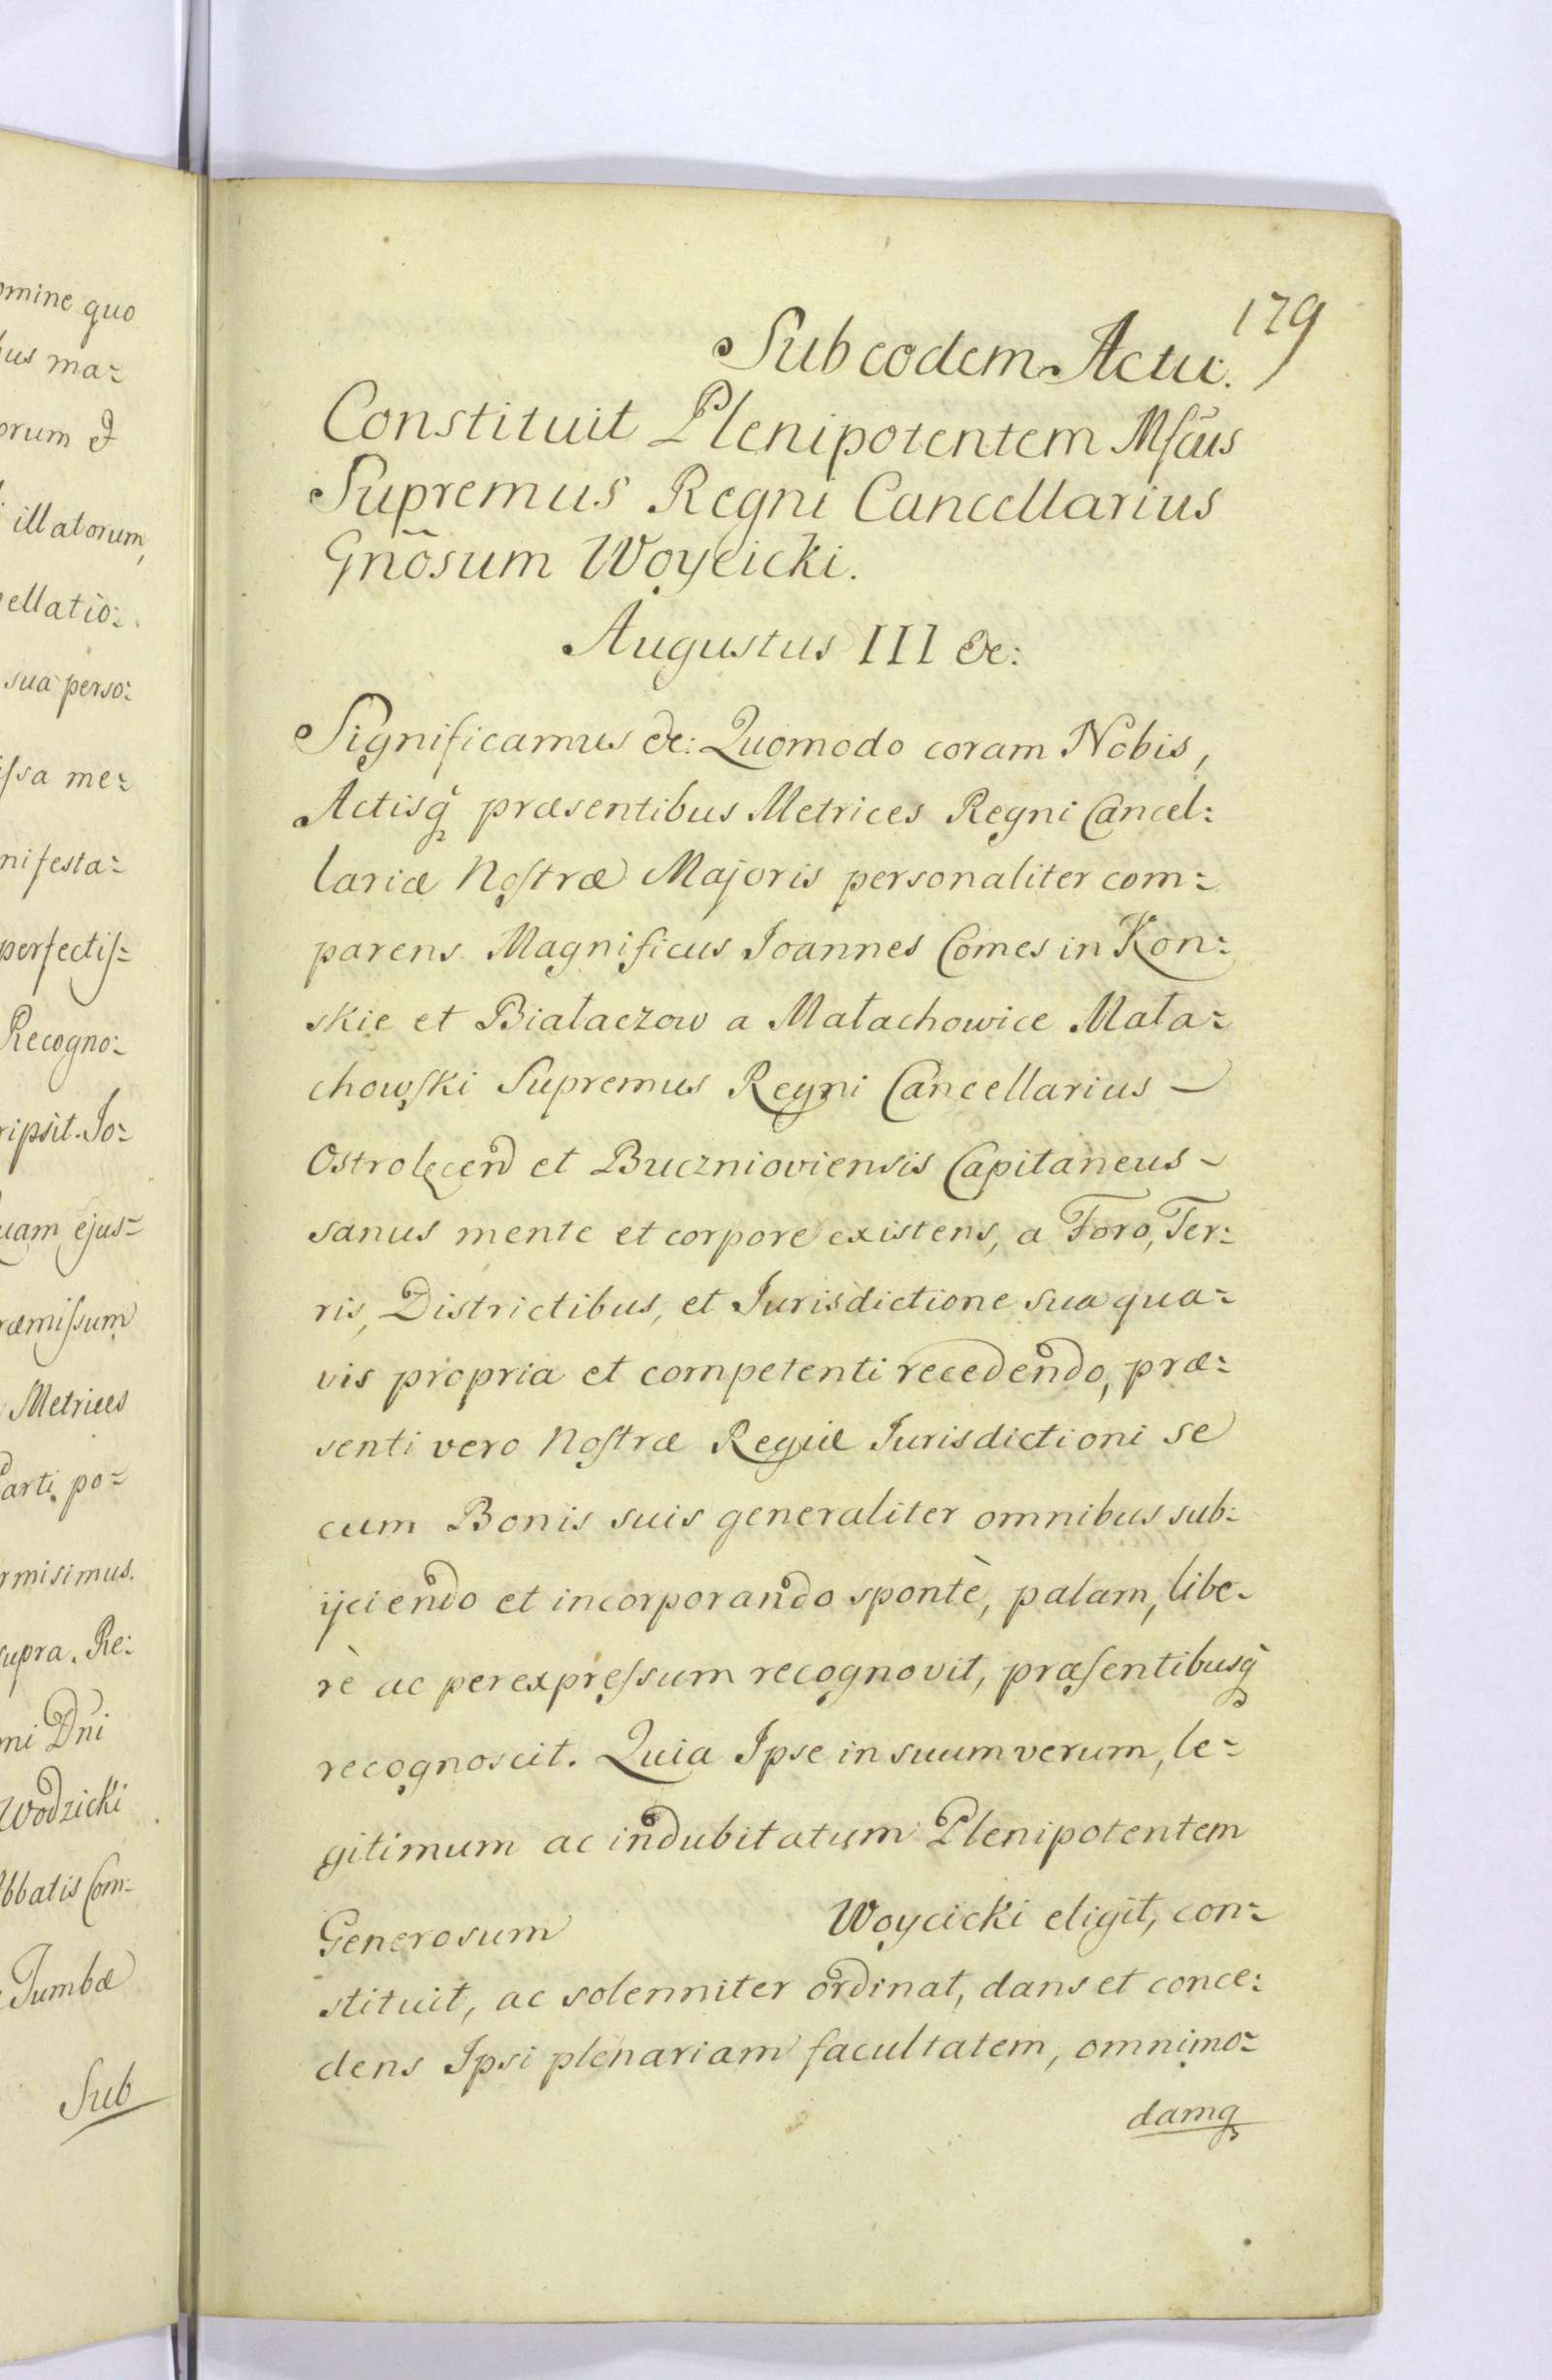 omine quo
bus ma=
orum et
illatorum,
pellatio:
sua perso:
issa me=
nifesta=
perfectis=
Recogno=
ripsit. Jo=
uam ejus=
ræmissum
Metrices
Parti po=
rmisimus.
supra. Re:
ni Dni
Wodzicki
bbatis Com=
Tumbæ
Sub
179
Sub eodem Actu.
Constituit Plenipotentem Mfcus
Supremus Regni Cancellarius
Gnõsum Woycicki.
Augustus III &c:
Significamus &c: Quomodo coram Nobis,
Actisq præsentibus Metrices Regni Cancel:
lariæ Nostræ Majoris personaliter com=
parens Magnificus Joannes Comes in Kon=
skie et Białaczow a Małachowice Mała=
chowski Supremus Regni Cancellarius
Ostrolęcen et Bucznioviensis Capitaneus
sanus mente et corpore existens, a Foro, Ter=
ris, Districtibus, et Jurisdictione sua qua=
vis propria et competenti recedendo, præ=
senti vero Nostræ Regiæ Jurisdictioni se
cum Bonis suis generaliter omnibus sub=
ijciendo et incorporando spontè, palam, libe=
rè ac per expressum recognovit, præsentibusq
recognoscit. Quia Ipse in suum verum, le=
gitimum ac indubitatum Plenipotentem
Generosum Woycicki eligit, con=
stituit, ac solenniter ordinat, dans et conce:
dens Ipsi plenariam facultatem, omnimo=
damq